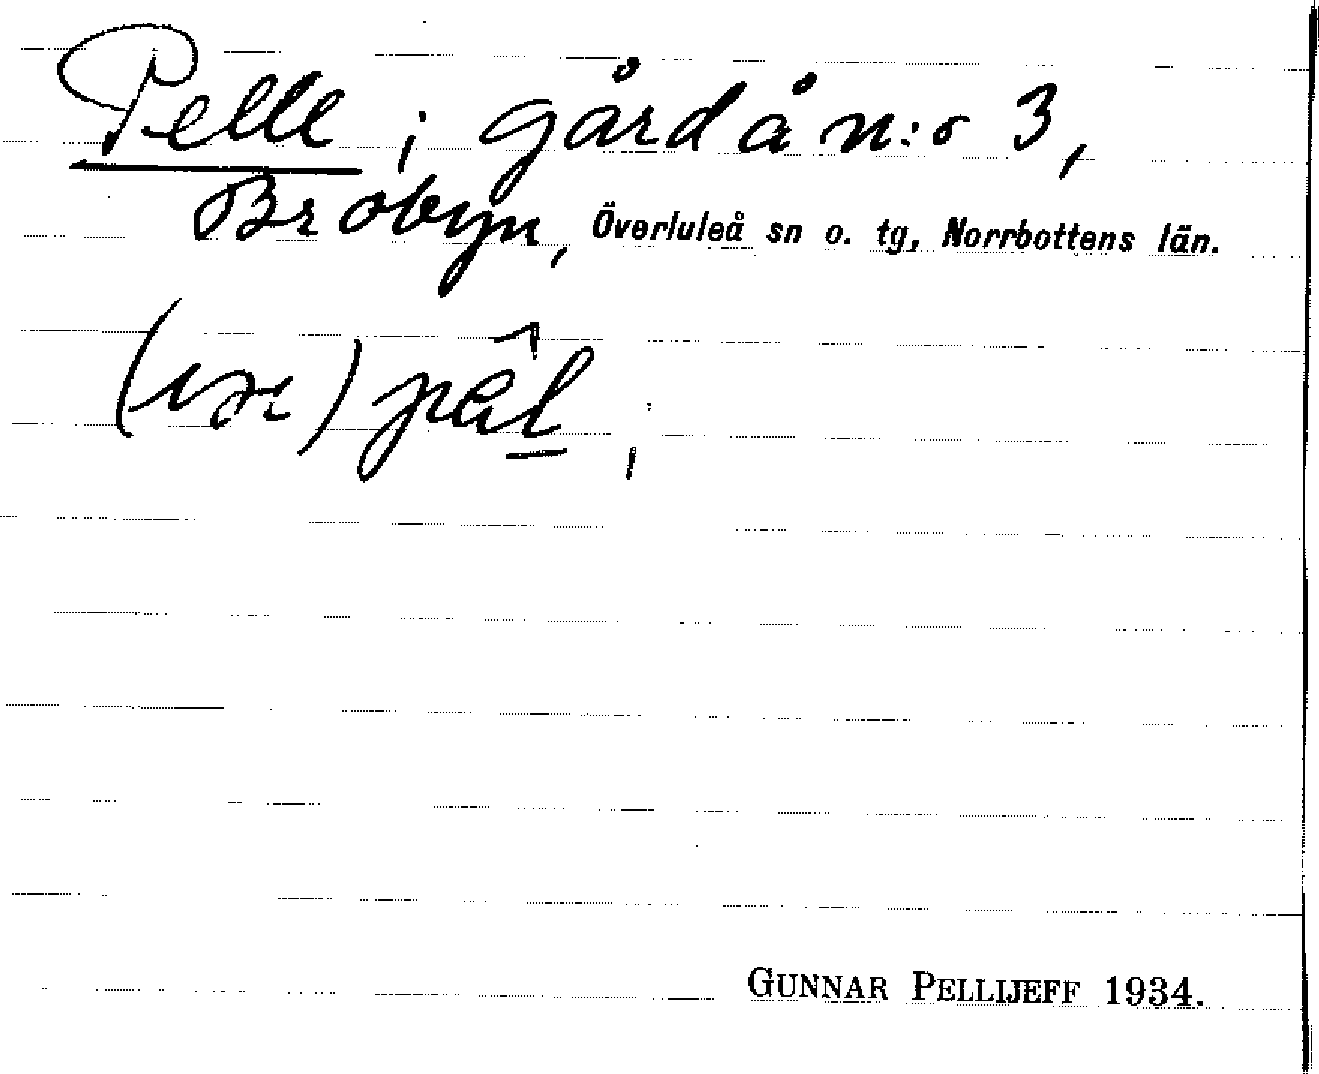 Pelle, gård å n:o 3,
Brobyn, Överluleå sn o. tg, Norrbottens län.
GUNNAR PELLIJEFF 1934.